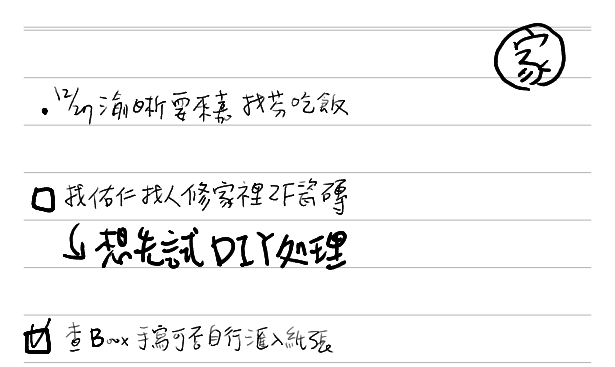 家
• 12/27 渝晰要來嘉 找芬吃飯
☐ 找佑仁找人修家裡2F瓷磚
↳ 想先試DIY処理
☑ 查Boox手寫可否自行匯入紙張